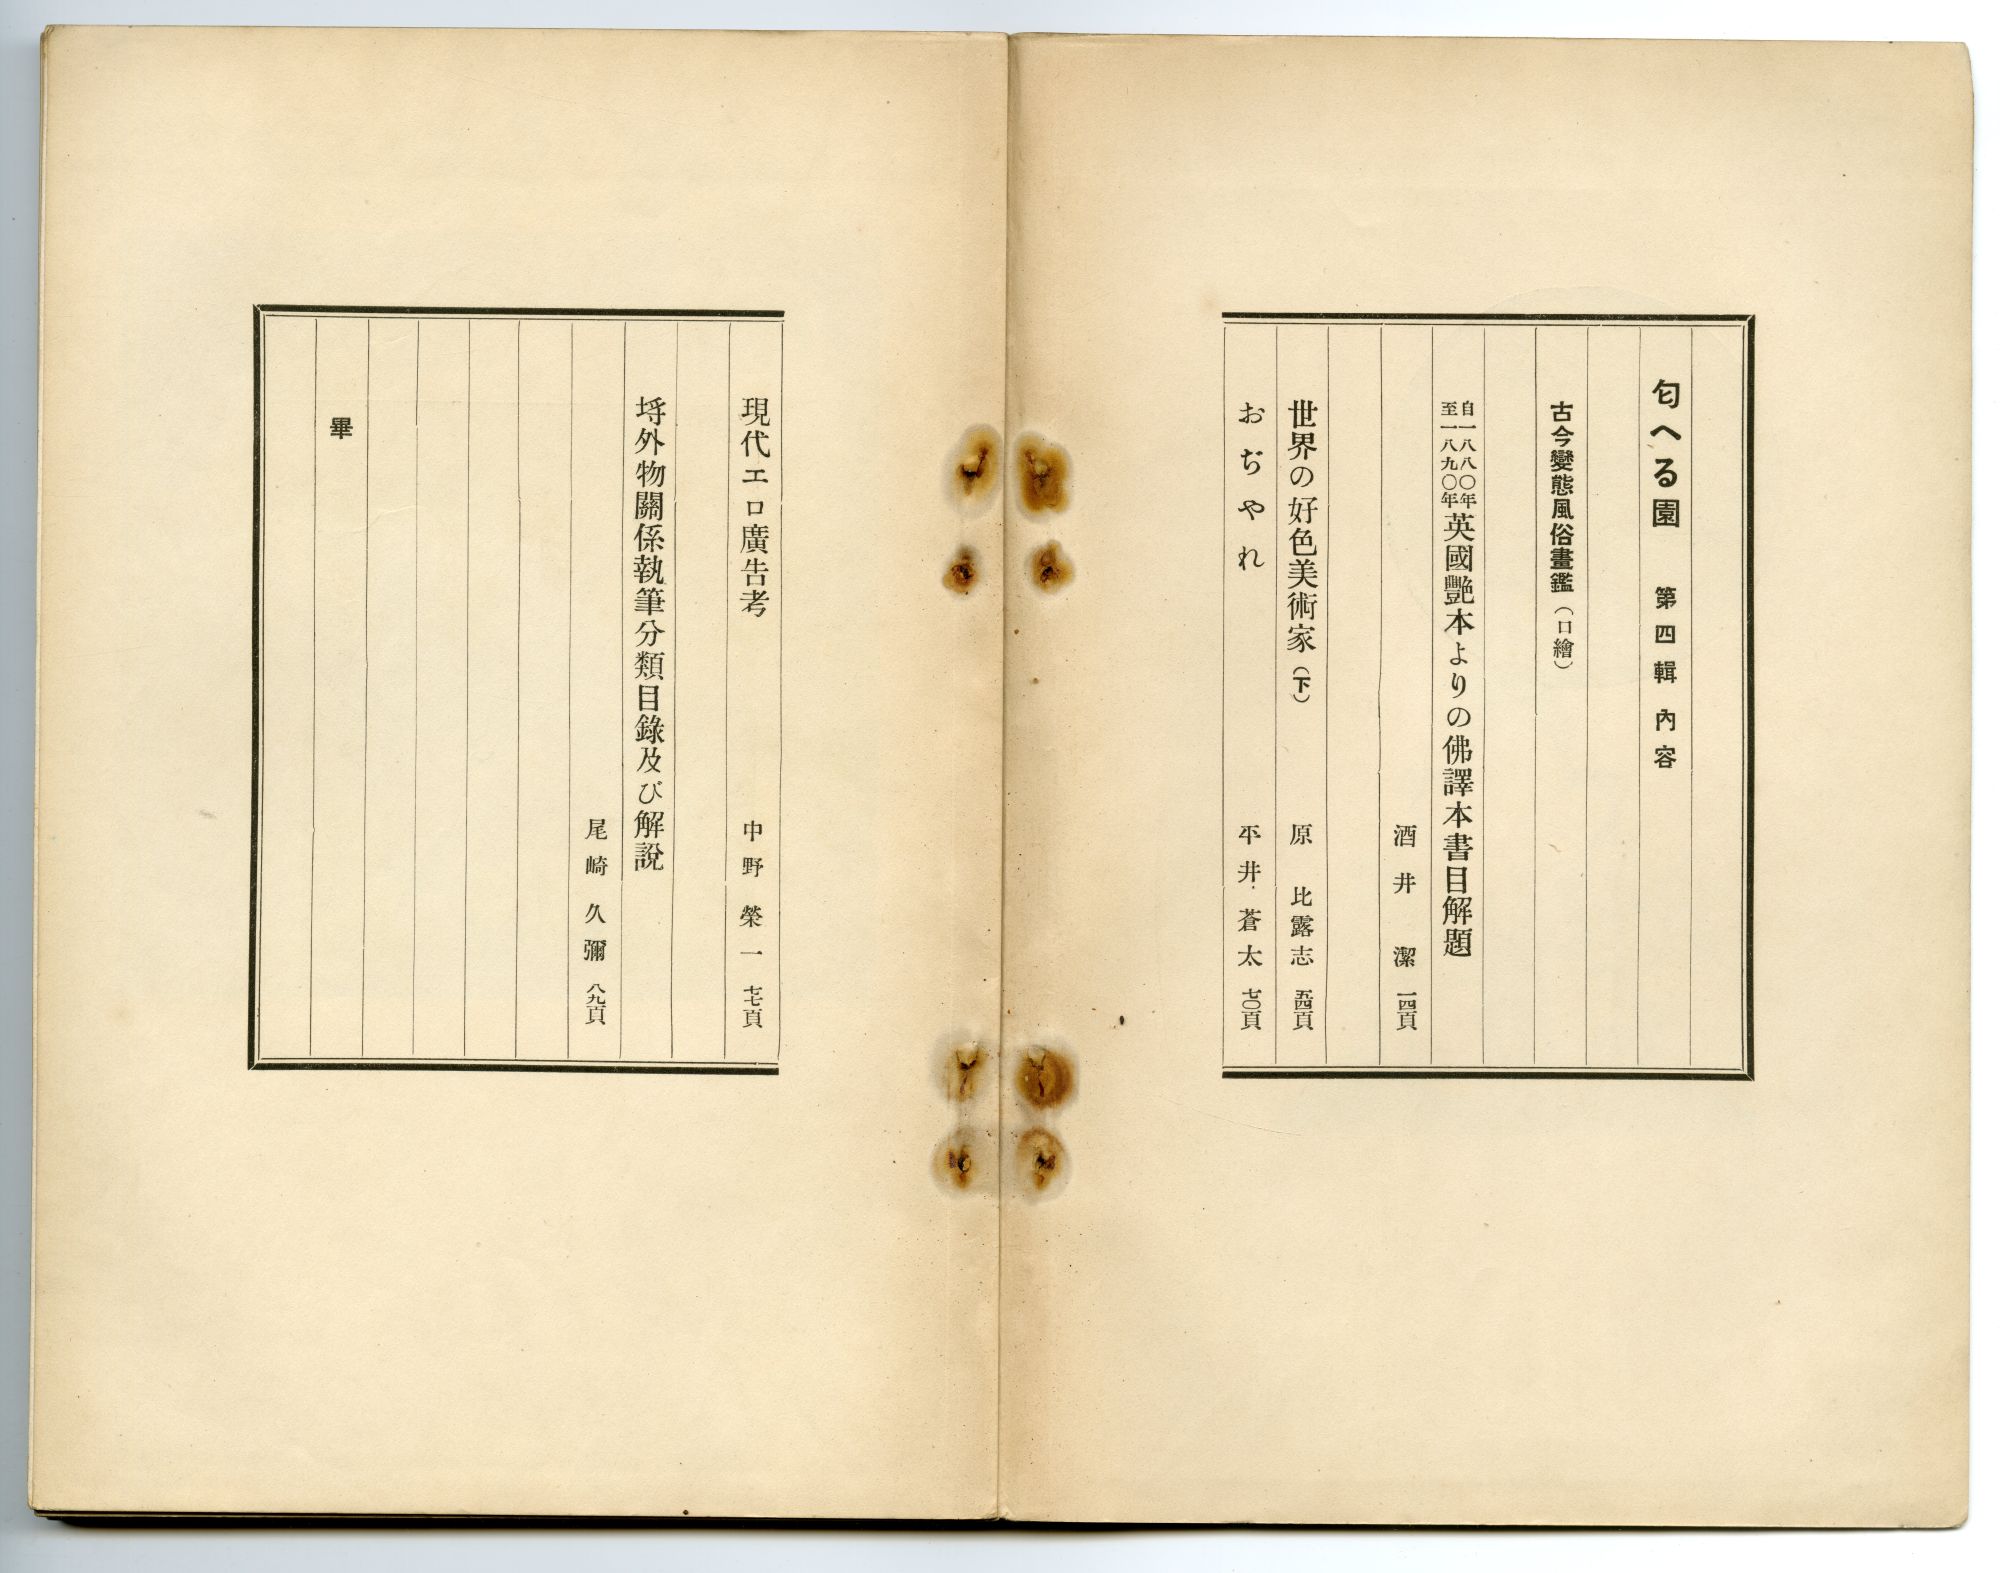 匂へる園　第四輯內容
古今變態風俗畫鑑（口繪）
自一八八〇年
至一八九〇年
英國艷本よりの佛譯本書目解題
酒井　潔　一四頁
世界の好色美術家（下）　原　比露志　五四頁
おぢやれ　平井蒼太　七〇頁
現代エロ廣告考　中野榮一　七七頁
埓外物關係執筆分類目錄及び解說
尾崎久彌　八九頁
畢